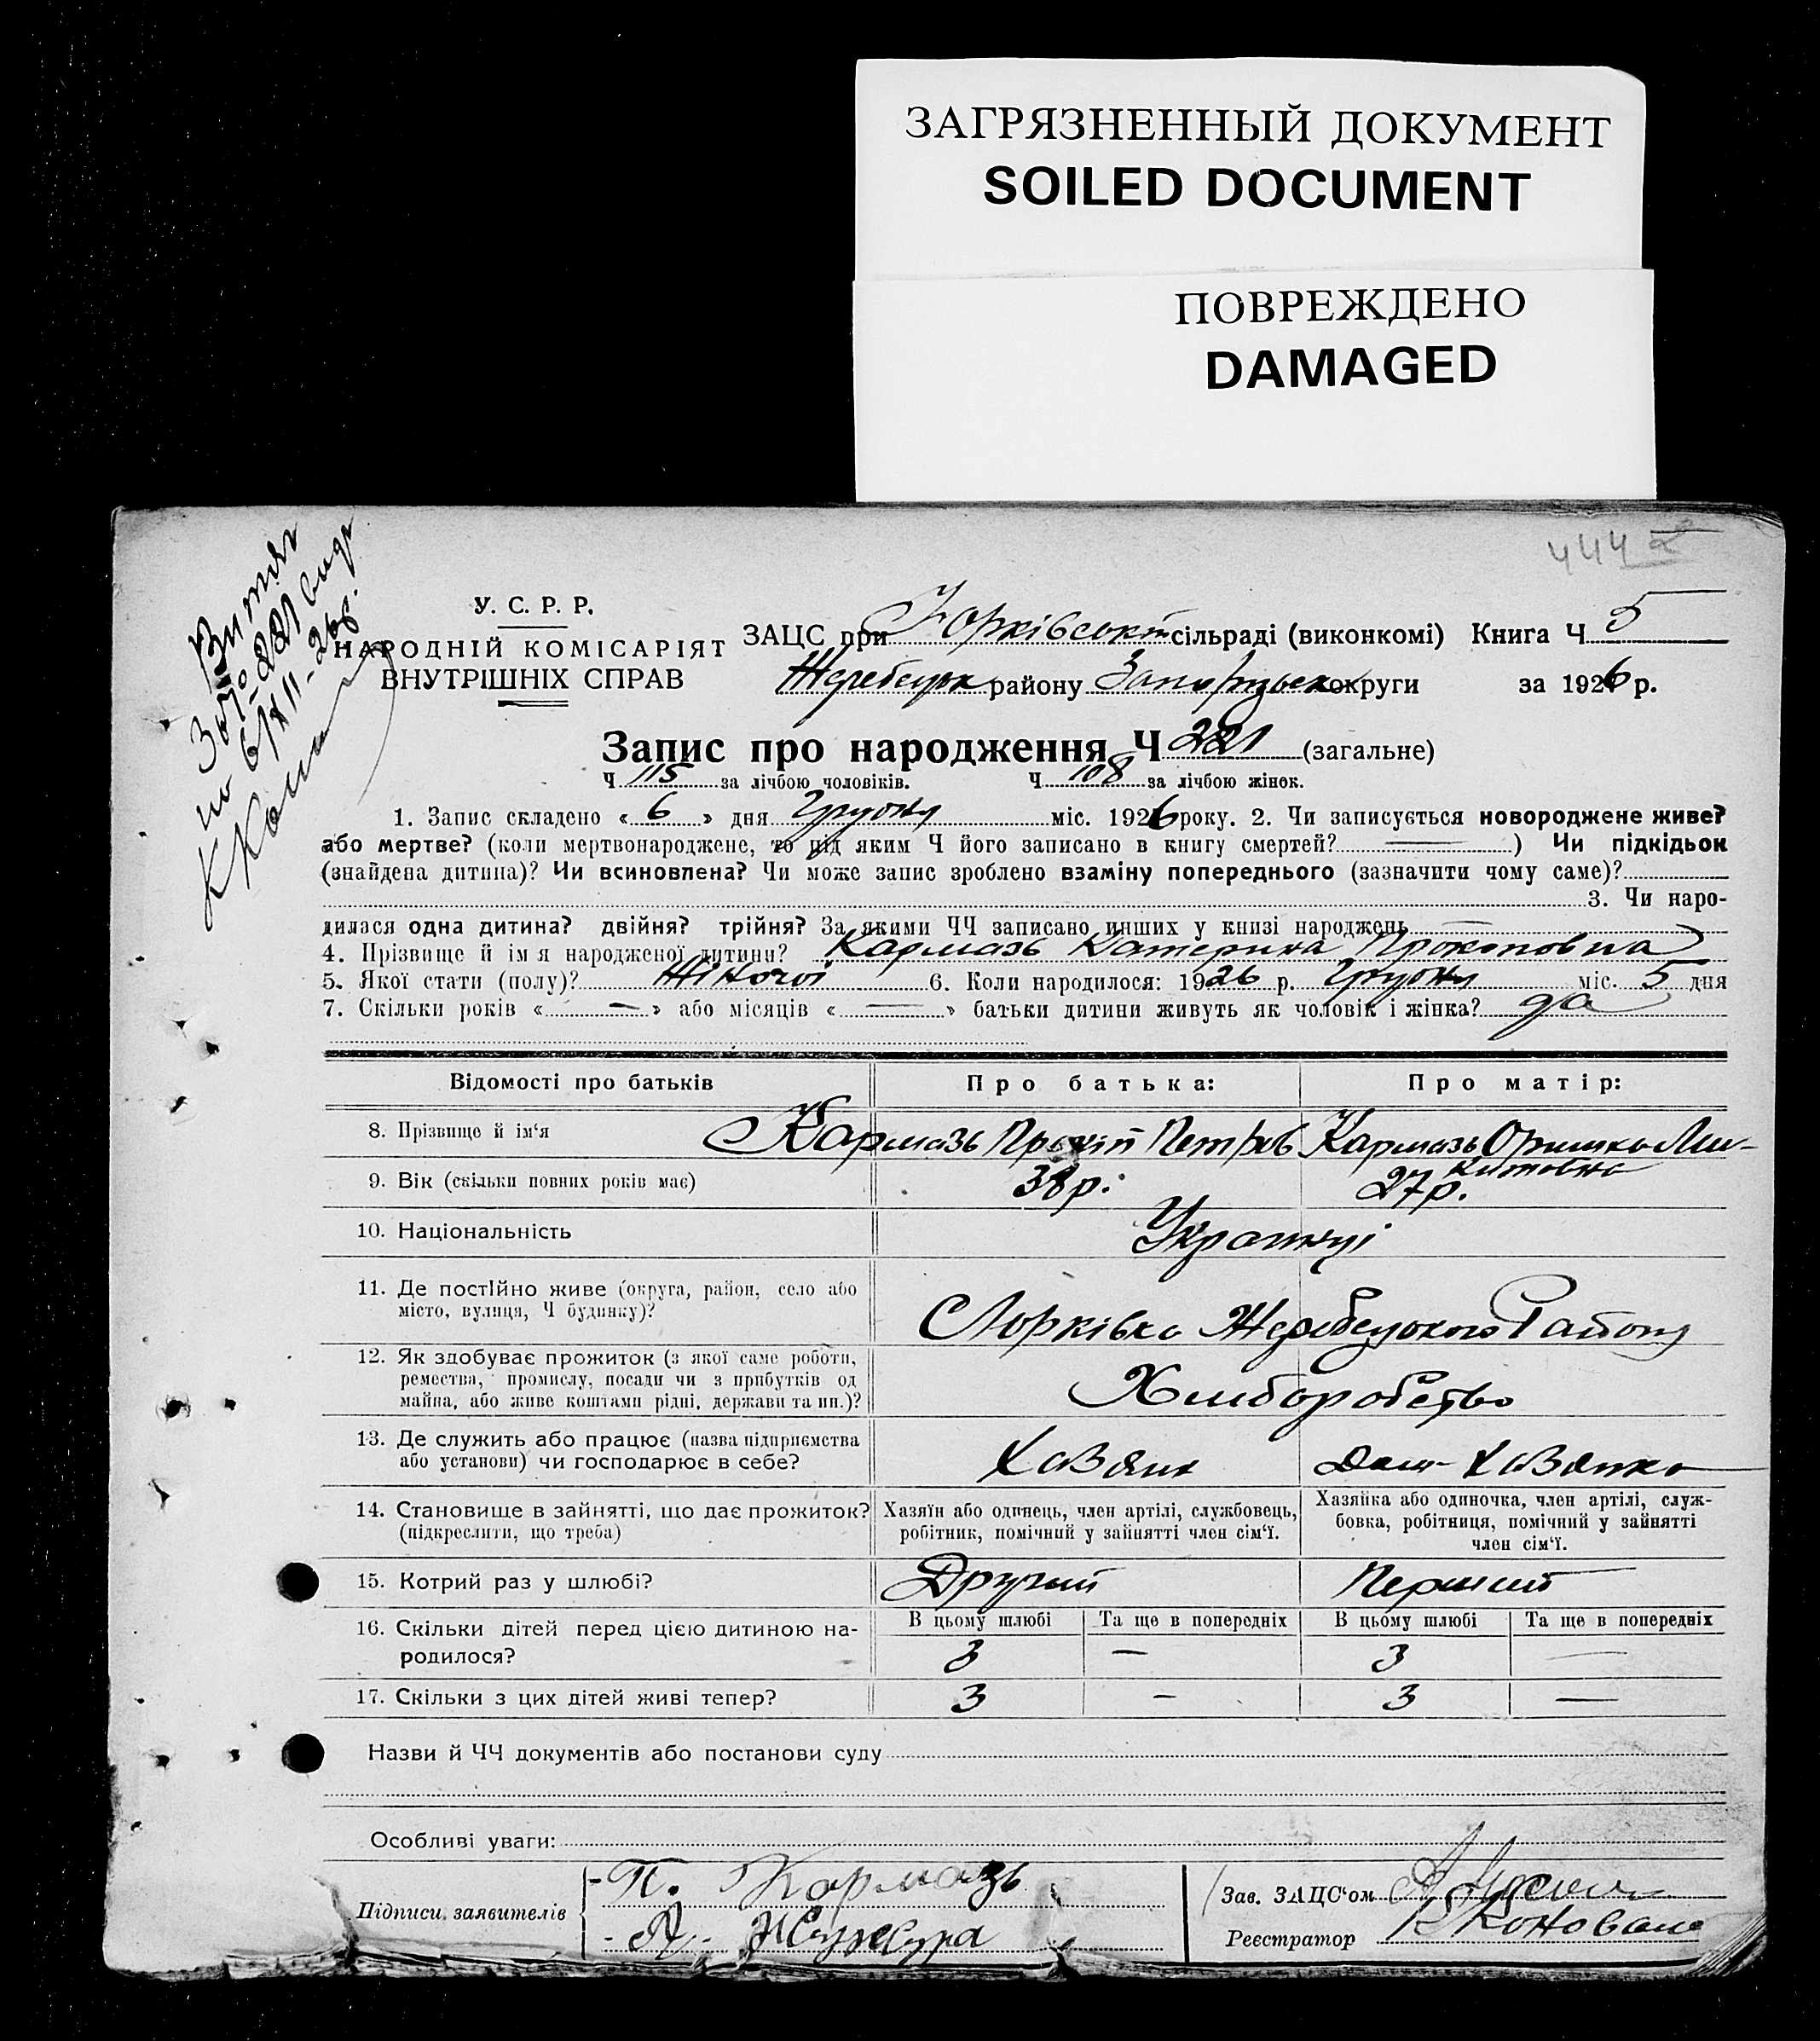 ЗАГРЯЗНЕННЫЙ ДОКУМЕНТ
SOILED DOCUMENT
ПОВРЕЖДЕНО
DAMAGED
444
Витяг
за № 221 видт
по 6/XII-26р.
У. С. Р. Р.
НАРОДНІЙ КОМІСАРІЯТ
ВНУТРІШНІХ СПРАВ
ЗАЦС при Юрківській сільраді (виконкомі) Книга Ч 5
Жеребецьк району Запорізьск округи за 1926 р.
Запис про народження Ч 221 (загальне)
Ч 115 за лічбою чоловіків. Ч 108 за лічбою жінок.
1. Запис складено « 6 » дня Грудня міс. 1926 року. 2. Чи записується новороджене живе?
або мертве? (коли мертвонароджене, то під яким Ч його записано в книгу смертей? — ) Чи підкідьок
(знайдена дитина)? Чи всиновлена? Чи може запис зроблено взаміну попереднього (зазначити чому саме)?
3. Чи наро-
дилася одна дитина? двійня? трійня? За якими ЧЧ записано инших у книзі народжень —
4. Прізвище й ім я народженої дитини? Кармазь Катерина Прокоповна
5. Якої стати (полу)? Жіночої 6. Коли народилося: 1926 р. Грудня міс. 5 дня
7. Скільки років « — » або місяців « — » батьки дитини живуть як чоловік і жінка? да
Відомості про батьків Про батька: Про матір:
8. Прізвище й ім‘я Кармазь Прокіп Петров Кармазь Оришка Ми-
китовна
9. Вік (скільки повних років має) 38р. 27р.
10. Національність Українці
11. Де постійно живе (округа, район, село або
місто, вулиця, Ч будинку)? С Юрківка Жеребецького Району
12. Як здобуває прожиток (з якої саме роботи,
ремества, промислу, посади чи з прибутків од
майна, або живе коштами рідні, держави та ин.)? Хлиборобство
13. Де служить або працює (назва підприємства
або установи) чи господарює в себе? Хазяин Дом-Хазяика
14. Становище в зайнятті, що дає прожиток?
(підкреслити, що треба)
Хазяїн або одинець, член артілі, службовець,
робітник, помічний у зайнятті член сім‘ї.
Хазяйка або одиночка, член артілі, служ-
бовка, робітниця, помічний у зайнятті
член сім‘ї.
15. Котрий раз у шлюбі? Другий Перший
16. Скільки дітей перед цією дитиною на-
родилося?
В цьому шлюбі Та ще в попередніх В цьому шлюбі Та ще в попередніх
3 — 3 —
17. Скільки з цих дітей живі тепер? 3 — 3 —
Назви й ЧЧ документів або постанови суду
Особливі уваги:
Підписи заявителів
П. Кармазь
Я. Жужура
Зав. ЗАЦС‘ом
Реєстратор Коновал